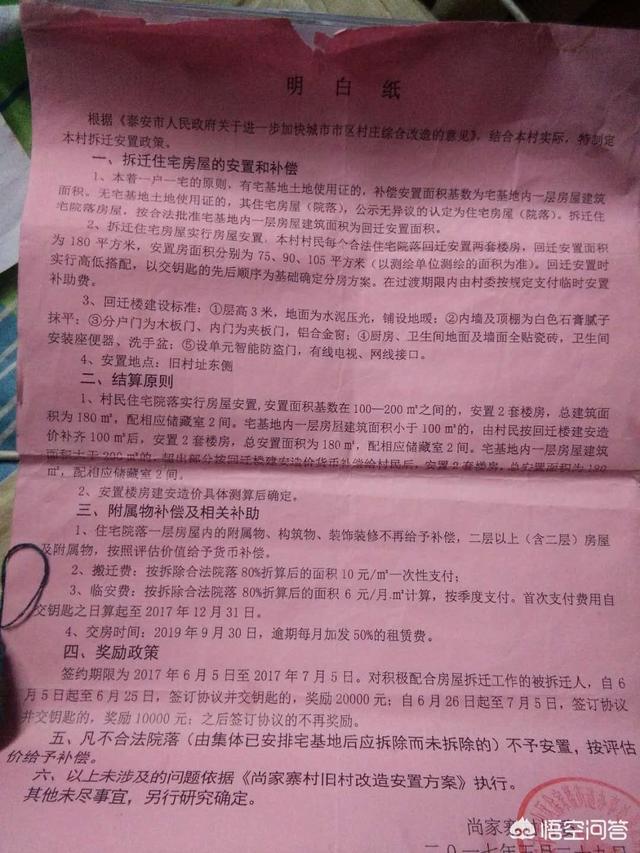 明白纸
根据《泰安市人民政府关于进一步加快城市市区村庄综合改造的意见》，结合本村实际，特制定
本村拆迁安置政策。
一、拆迁住宅房屋的安置和补偿
1、本着一户一宅的原则，有宅基地土地使用证的，补偿安置面积基数为宅基地内一层房屋建筑
面积。无宅基地土地使用证的，其住宅房屋（院落），公示无异议的认定为住宅房屋（院落）。拆迁住
宅院落房屋，按合法批准宅基地内一层房屋建筑面积为回迁安置面积。
2、拆迁住宅房屋实行房屋安置，本村村民每个合法住宅院落回迁安置两套楼房，回迁安置面积
为180平方米，安置房面积分别为75、90、105平方米（以测绘单位测绘的面积为准）。回迁安置时
实行高低搭配，以交钥匙的先后顺序为基础确定分房方案。在过渡期限内由村委按规定支付临时安置
补助费。
3、回迁楼建设标准：①层高3米，地面为水泥压光，铺设地暖；②内墙及顶棚为白色石膏腻子
抹平；③分户门为木板门、内门为夹板门，铝合金窗；④厨房、卫生间地面及墙面全贴瓷砖，卫生间
安装座便器、洗手盆；⑤设单元智能防盗门，有线电视、网线接口。
4、安置地点：旧村址东侧
二、结算原则
1、村民住宅院落实行房屋安置,安置面积基数在100—200㎡之间的，安置2套楼房，总建筑面
积为180㎡，配相应储藏室2间。宅基地内一层房屋建筑面积小于100㎡的，由村民按回迁楼建安造
价补齐100㎡后，安置2套楼房，总安置面积为180㎡，配相应储藏室2间。宅基地内一层房屋建筑
面积大于200㎡的，超出部分按回迁楼建安造价货币补偿给村民后，安置2套楼房，总安置面积为180
㎡，配相应储藏室2间。
2、安置楼房建安造价具体测算后确定。
三、附属物补偿及相关补助
1、住宅院落一层房屋内的附属物、构筑物、装饰装修不再给予补偿，二层以上（含二层）房屋
及附属物，按照评估价值给予货币补偿。
2、搬迁费：按拆除合法院落80%折算后的面积10元/㎡一次性支付；
3、临安费：按拆除合法院落80%折算后的面积6元/月.㎡计算，按季度支付。首次支付费用自
交钥匙之日算起至2017年12月31日。
4、交房时间：2019年9月30日，逾期每月加发50%的租赁费。
四、奖励政策
签约期限为2017年6月5日至2017年7月5日。对积极配合房屋拆迁工作的被拆迁人，自6
月5日起至6月25日，签订协议并交钥匙的，奖励20000元；自6月26日起至7月5日，签订协议
并交钥匙的，奖励10000元；之后签订协议的不再奖励。
五、凡不合法院落（由集体已安排宅基地后应拆除而未拆除的）不予安置，按评估
价给予补偿。
六、以上未涉及的问题依据《尚家寨村旧村改造安置方案》执行。
其他未尽事宜，另行研究确定。
尚家寨
二〇一七年五月二十九日
悟空问答